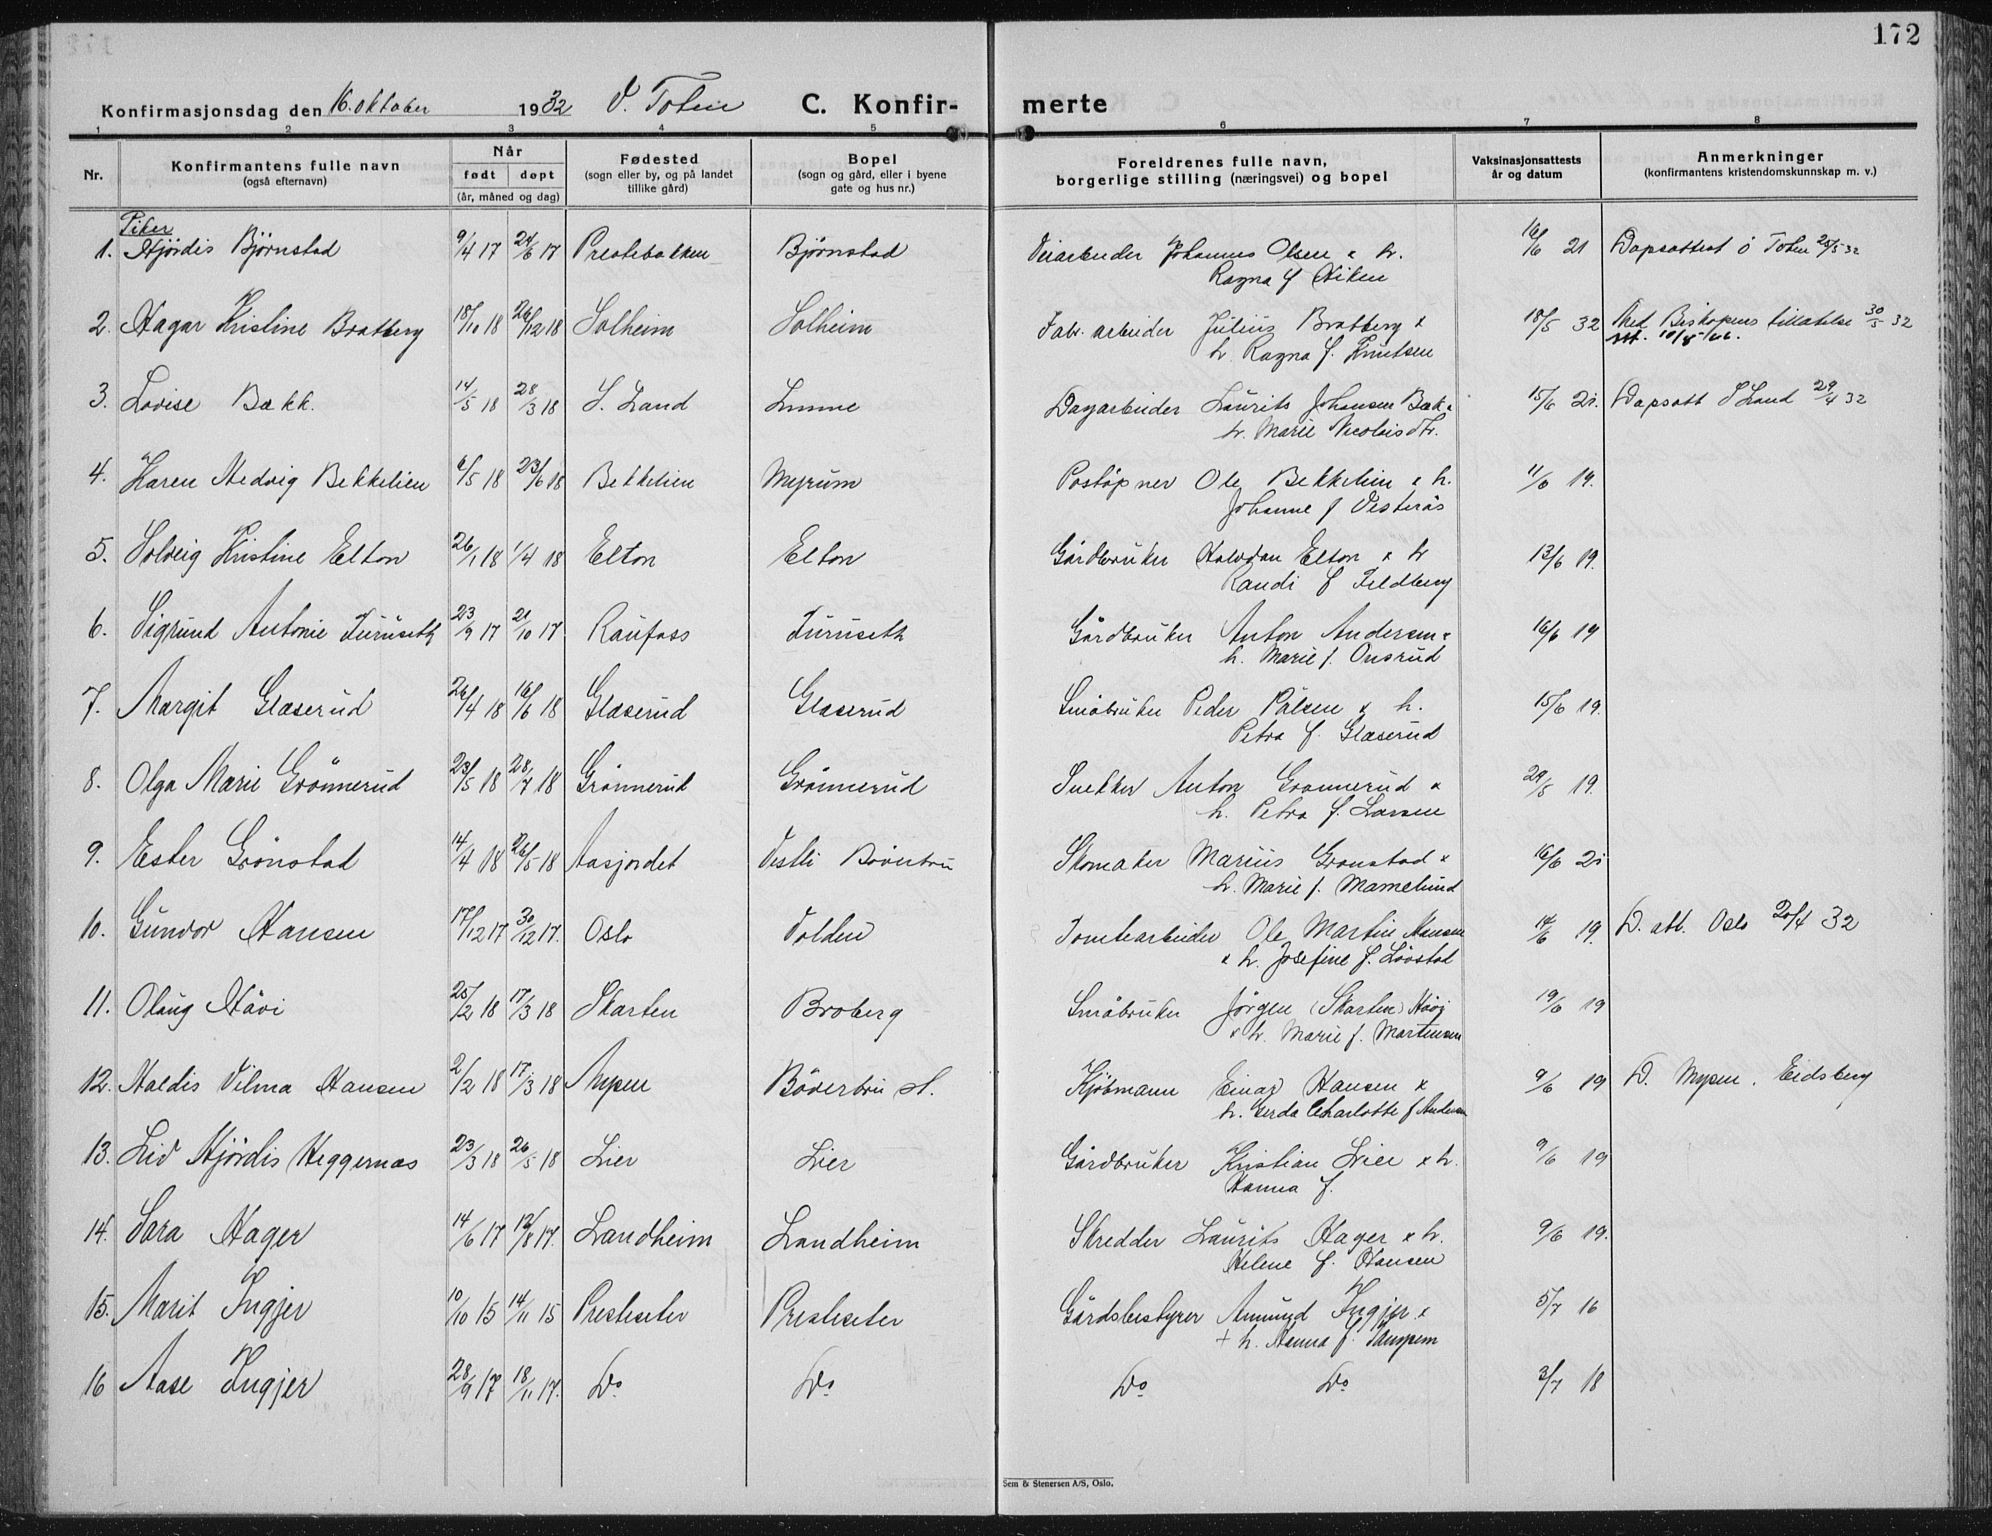 172
Konfirmasjonsdag den 16. oktober 1932 V. Toten C. Konfir- merte
1 2 3 4 5 6 7 8
Nr. Konfirmantens fulle navn (også efternavn) Når født døpt (år, måned og dag) Fødested (sogn eller by, og på landet tillike gård) Bopel (sogn og gård, eller i byene gate og hus nr.) Foreldrenes fulle navn, borgerlige stilling (næringsvei) og bopel Vaksinasjonsattests år og datum Anmerkninger (konfirmantens kristendomskunnskap m. v.)
Piker
1. Hjördis Björnstad 9/4 17 24/6 17 Prestebakken Björnstad Veiarbeider Johannes Olsen & h. 16/6 21 Dåpsattest ö Toten 25/5 32
Ragna f.
2. Hagar Kristine Bratberg 18/10 18 26/12 18 Solheim Solheim Fabr. arbeider Julius Bratberg & 18/5 32 Med Biskopens tillatelse 30/5 32
h. Ragna f. Knutsen
3. Lovise Bækk. 14/5 18 28/3 18 S. Land Dagarbeider Laurits Johansen Bæk & 15/6 21. Dåpsatt S Land 29/4 32
h. Marie Nicolaisdtr.
4. Karen Hedvig Bekkelien 6/5 18 23/6 18 Bekkelien Myrum Poståpner Ole Bekkelien & h. 11/6 19.
Johanne f Vesterås
5. Solveig Kristine Elton 26/1 18 1/4 18 Elton Elton Gårdbruker Halvdan Elton & h 13/6 19.
Randi f Feldberg
6. Sigrund Antonie Furuseth 23/9 17 21/10 17 Raufoss Furuseth Gårdbruker Anton Andersen & 16/6 19
h. Marie f. Onsrud
7. Margit Glæserud 26/4 18 16/6 18 Glæserud Glæserud Småbruker Peder Pålsen & h. 15/6 19.
Petra f. Glæserud
8. Olga Marie Grönnerud 23/5 18 28/7 18 Grönnerud Grönnerud Snekker Anton Grönnerud & 29/8 19.
h. Petra f. Larsen
9. Ester Grönstad 14/4 18 26/5 18 Aasjordet Vestli Böverbru Skomaker Marius Gronstad & 16/6 21
h. Marie f. Mamelund
10. Gundor Hansen 17/12 17 30/12 17. Oslo Volden Tomtearbeider Ole Martin Hansen 14/6 19. D. att. Oslo 20/4 32
& h. Josefine f. Lövstad
11. Olaug Håvi 25/2 18 17/3 18 Skarten Broberg Småbruker Jörgen (Skarten) Håvi 19/6 19
& h. Marie f. Martinsen
12. Haldis Vilma Hansen 2/2 18 17/3 18 Mysen Böverbru st. Kjöbmann Einar Hansen & 9/6 19 D. Mysen, Eidsberg
h. Gerda Charlotte f Andersen
13. Liv Hjördis Heggernæs 23/3 18 26/5 18 Lier Lier Gårdbruker Kristian Lier & h. 9/6 19
Hanna f.
14. Sara Hager 14/6 17 12/8 17. Landheim Landheim Skredder Laurits Hager & h. 9/6 19.
Helene f. Hansen
15. Marit Ingjer 10/10 15 14/11 15 Presteseter Presteseter Gårdsbestyrer Amund Ingjer & 5/7 16
+ h. Hanna f.
16 Aase Ingjer 28/9 17 18/11 17. Do Do Do Do 3/7 18
Sem & Stenersen A/S, Oslo.